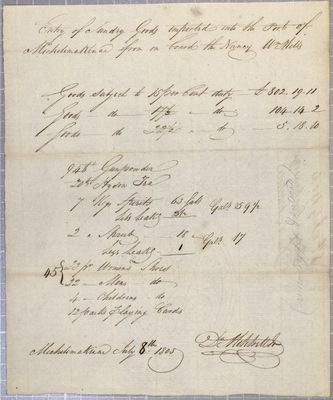 Entry of Sundry Goods imported into the Port of
Michilimakinac from on board the Nancy Wm Mills
Goods Subject to 15 per Cent duty - £ 302.19.10
Goods - do - 17½ - do - 104.14.2
Goods - do 22½ - do - 5.18.10
94 lb Gunpowder
20 lb Hyson Tea
7 Kegs Spirits 63 Gals
less leakage 3½ Galls 59½
2 " Shrub 18 "
Less Leakage 1 Galls 17
45 {
pr Womens Shoes
32 " Mens do
4 " Childrens do
12 packs Playing Cards
Michilimakinac July 8th 1805